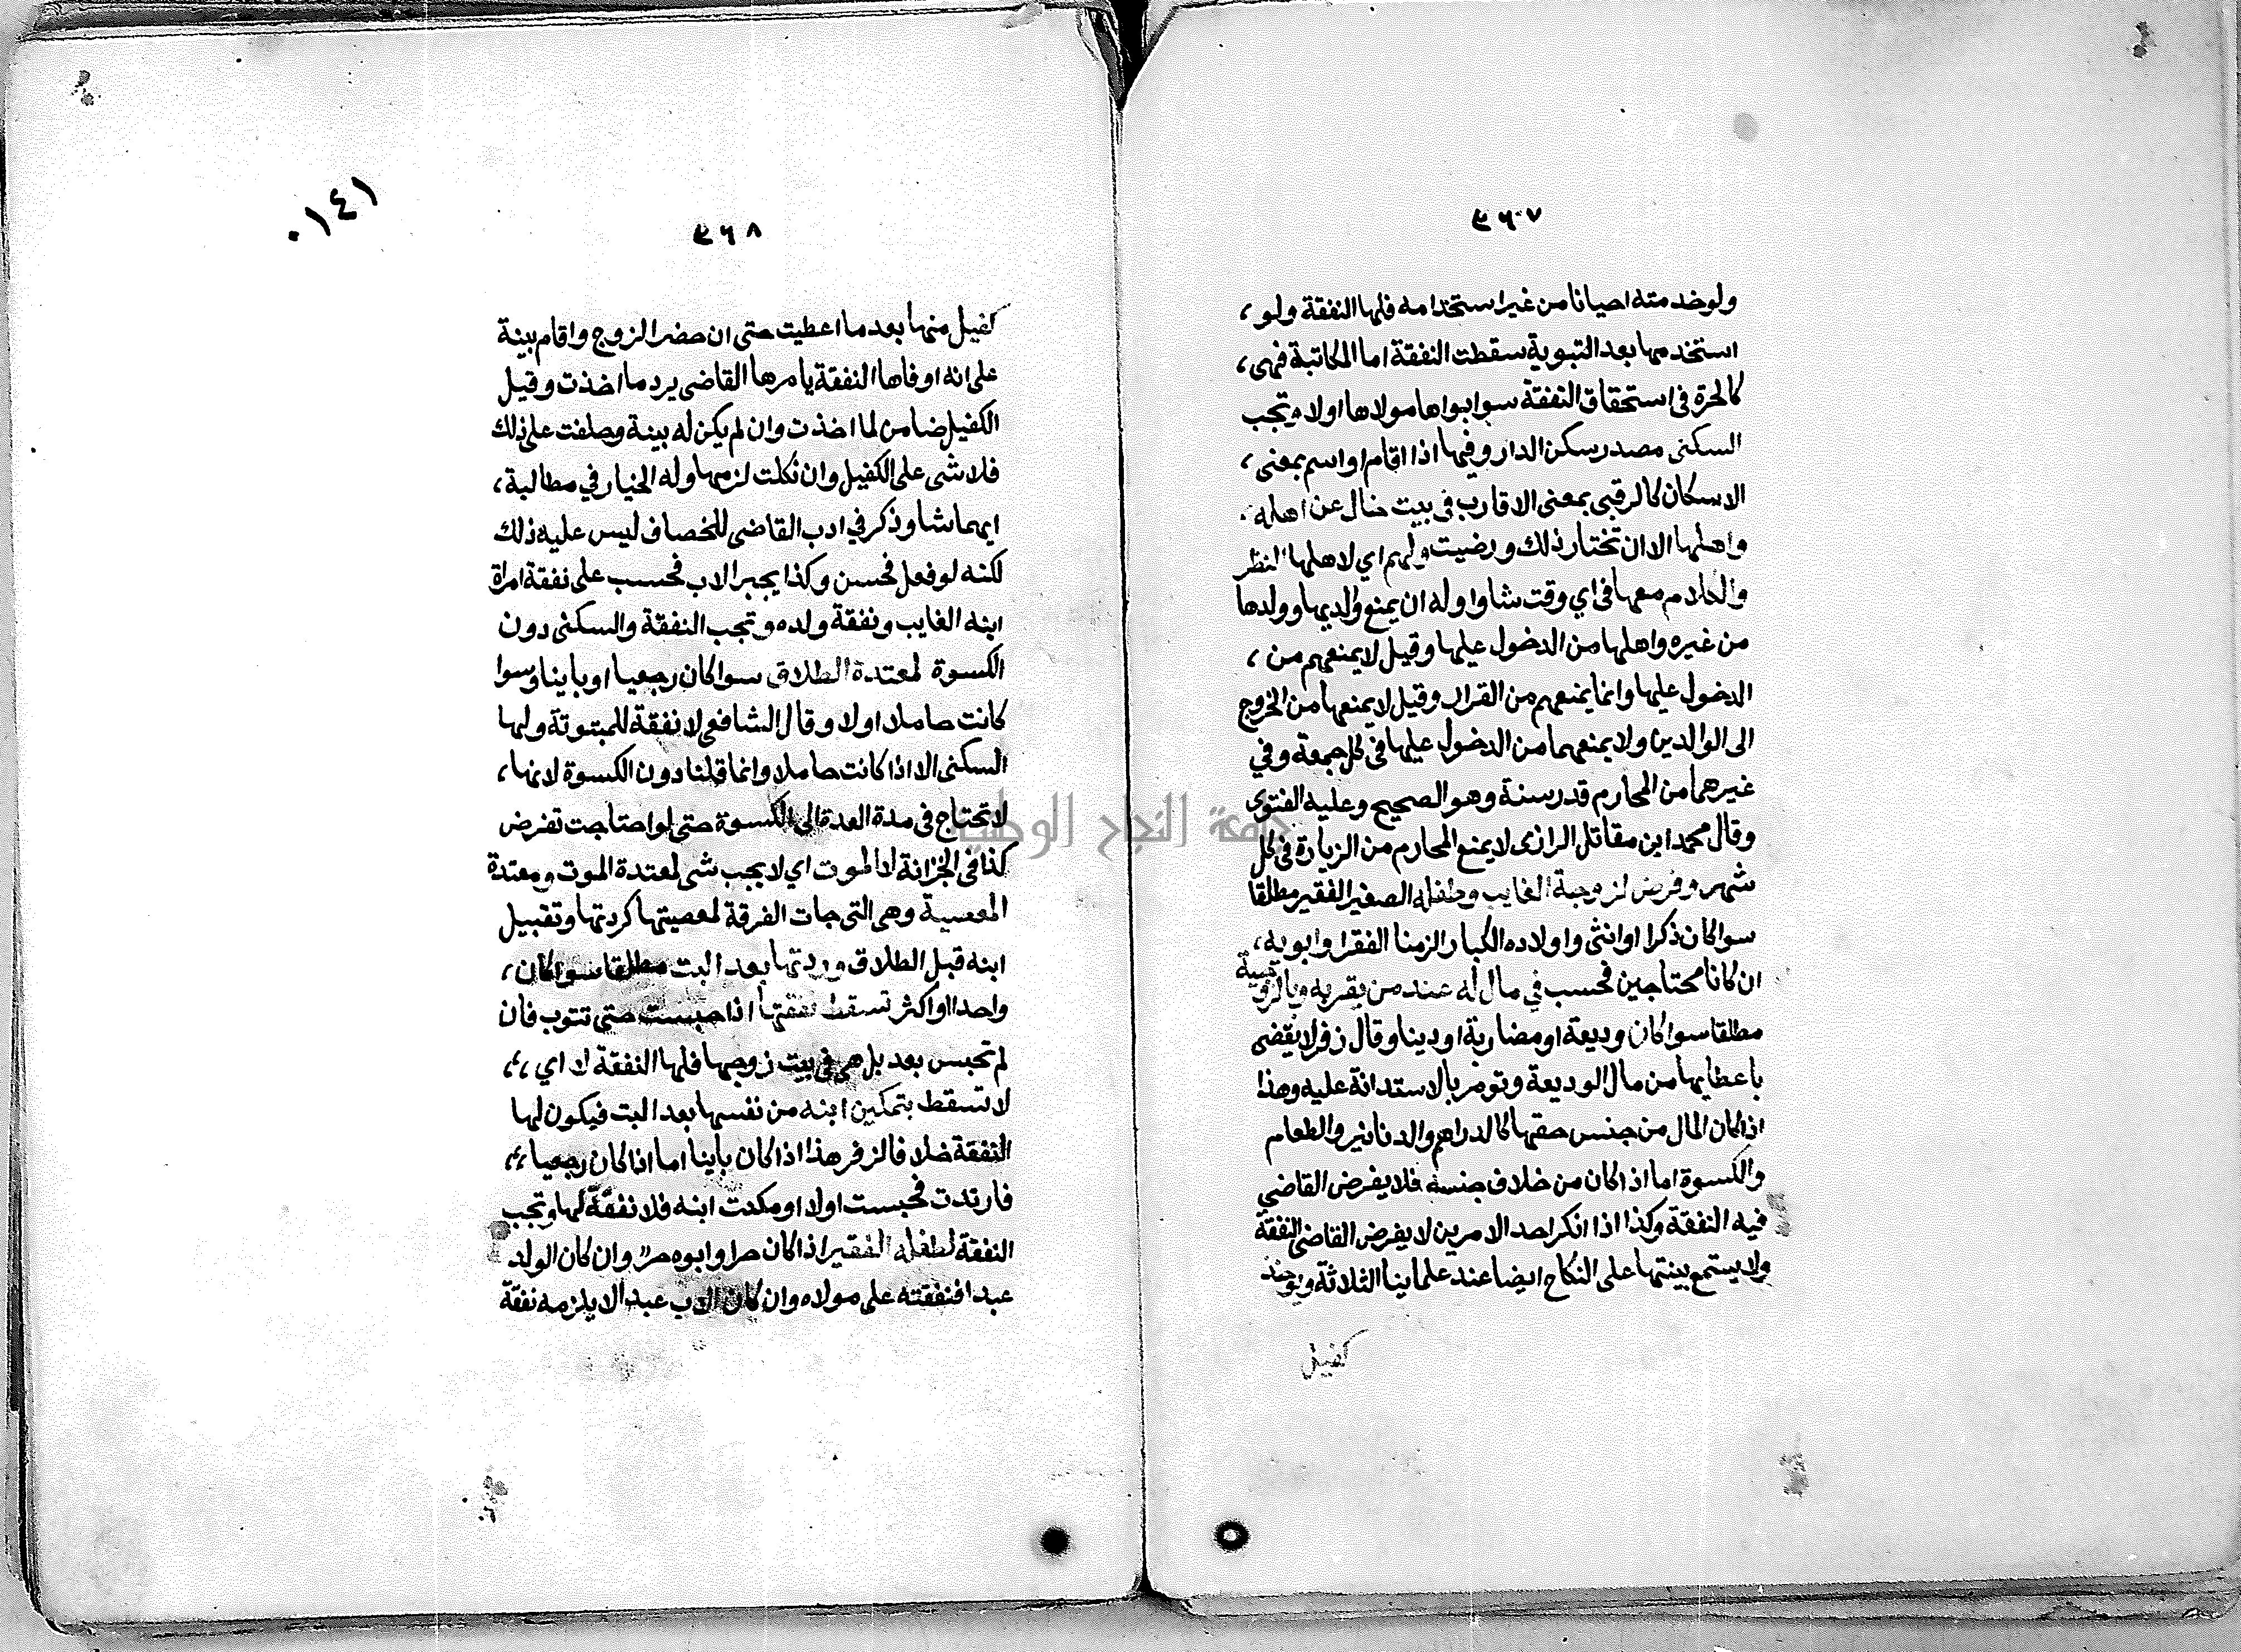 ٤٦٧
ولو خدمته احيانا من غير استخدامه فلها النفقة ولو ،
استخدمها بعد التبوية سقطت النفقة اما المكاتبة فهى ،
كالحرة فى استحقاق النفقة سوا بواها مولاها اولا وتجب
السكنى مصدر سكن الدار وفيها اذا اقام او اسم بمعنى ،
الاسكان كالرقبى بمعنى الاقارب فى بيت خال عن اهله
واهلها الا ان تختار ذلك ورضيت ولهم اي لاهلها النظر
والكلام معها فى اي وقت شاوا وله ان يمنع والديها وولدها
من غيره واهلها من الدخول عليها وقيل لا يمنعهم من ،
الدخول عليها وانما يمنعهم من القرار وقيل لا يمنعها من الخروج
الى الوالدين ولا يمنعهما من الدخول عليها فى كل جمعة وفي
غيرهما من المحارم قدر سنة وهو الصحيح وعليه الفتوى
وقال محمد ابن مقاتل الرازى لا يمنع المحارم من الزيارة فى كل
شهر وفرض لزوجة الغايب وطفله الصغير الفقير مطلقا
سوا كان ذكرا او انثى واولاده الكبار الزمنا الفقرا وابويه ،
ان كانا محتاجين فحسب في مال له عند من يقر به وبالزوجية
مطلقا سوا كان وديعة او مضاربة او دينا وقال زفر لا يقضى
باعطايها من مال الوديعة وتومر بالاستدانة عليه وهذا
اذا كان المال من جنس حقها كالدراهم والدنانير والطعام
والكسوة اما اذا كان من خلاف جنسه فلا يفرض القاضي
فيه النفقة وكذا اذا انكر احد الامرين لا يفرض القاضى النفقة
ولا يستمع بينتها على النكاح ايضا عند علماينا الثلاثة ويوخذ
كفيل
٠١٤١
٤٦٨
كفيل منها بعد ما اعطيت حتى ان حضر الزوج واقام بينة
على انه اوفاها النفقة يامرها القاضى يرد ما اخذت وقيل
الكفيل ضامن لما اخذت وان لم يكن له بينة وحلفت على ذلك
فلا شى على الكفيل وان نكلت لزمها وله الخيار في مطالبة ،
ايهما شا وذكر في ادب القاضى للخصاف ليس عليه ذلك
لكنه لو فعل فحسن وكذا يجبر الاب فحسب على نفقة امراة
ابنه الغايب ونفقة ولده وتجب النفقة والسكنى دون
الكسوة لمعتدة الطلاق سوا كان رجعيا او باينا وسوا
كانت حاملا اولا وقال الشافعى لا نفقة للمبتوتة ولها
السكنى الا اذا كانت حاملا وانما قلنا دون الكسوة لانها ،
لا تحتاج فى مدة العدة الى الكسوة حتى لو احتاجت تفرض
كذا فى الخزانة لا الموت اي لا يجب شى لمعتدة الموت ومعتدة
المعصية وهى التى جات الفرقة لمعصيتها كردتها وتقبيل
ابنه قبل الطلاق وردتها بعد البت مطلقا سوا كان ،
واحدا او اكثر تسقط نفقتها اذا حبست حتى تتوب فان
لم تحبس بعد بل هى فى بيت زوجها فلها النفقة لا اي ،،
لا تسقط بتمكين ابنه من نفسها بعد البت فيكون لها
النفقة خلافا لزفر هذا اذا كان باينا اما اذا كان رجعيا ،،
فارتدت فحبست اولا او مكدت ابنه فلا نفقة لها وتجب
النفقة لطفله الفقير اذا كان حرا وابوه حر وان كان الولد
عبدا فنفقته على مولاه وان كان الاب عبدا لا يلزمه نفقة
جامعة النجاح الوطنية